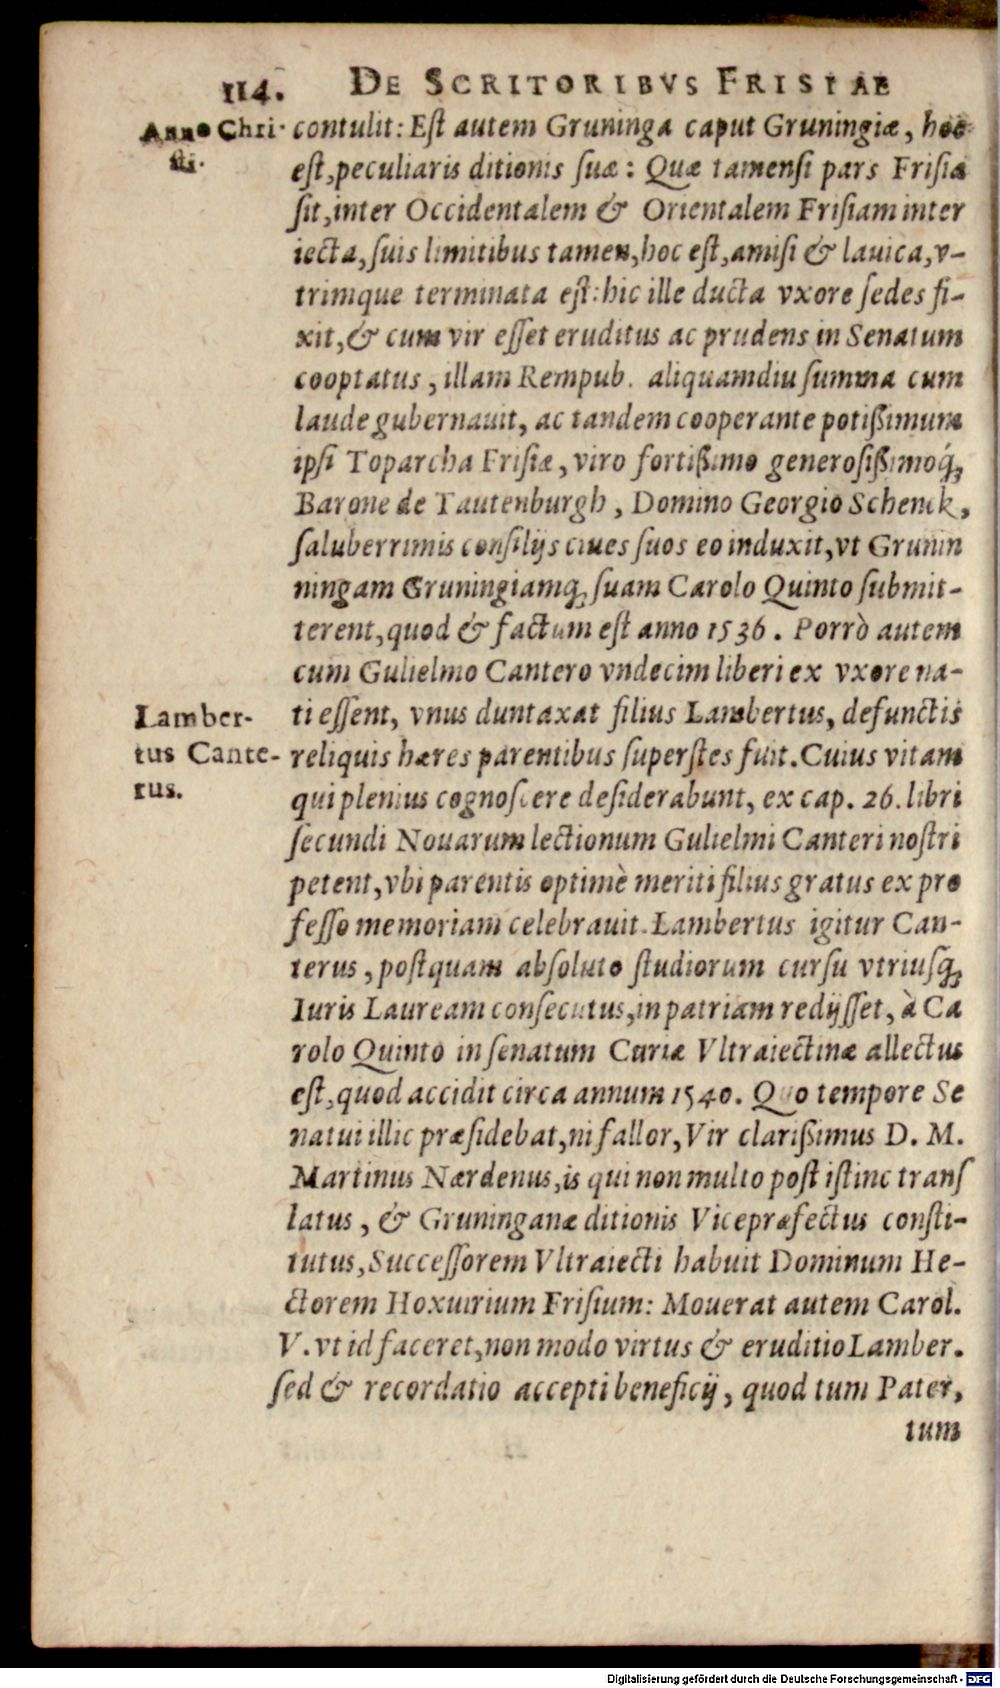 114. DE SCRITORIBVS FRISIAE
Anno Chri-
sti.
contulit: Est autem Gruninga caput Gruningiæ, hoc
est, peculiaris ditionis suæ: Quæ tamensi pars Frisia
sit, inter Occidentalem & Orientalem Frisiam inter
iecta, suis limitibus tamen, hoc est, amisi & lauica, v-
trimque terminata est: hic ille ducta vxore sedes fi-
xit, & cum vir esset eruditus ac prudens in Senatum
cooptatus, illam Rempub. aliquamdiu summa cum
laude gubernauit, ac tandem cooperante potißimum
ipsi Toparcha Frisiæ, viro fortißimo generosißimoq́;
Barone de Tautenburgh, Domino Georgio Schenck,
saluberrimis consilijs ciues suos eo induxit, vt Grunin
ningam Gruningiamq; suam Carolo Quinto submit-
terent, quod & factum est anno 1536. Porrò autem
cum Gulielmo Cantero vndecim liberi ex vxore na-
ti essent, vnus duntaxat filius Lambertus, defunctis
Lamber-
tus Cante-
rus.
reliquis hæres parentibus superstes fuit. Cuius vitam
qui plenius cognoscere desiderabunt, ex cap. 26. libri
secundi Nouarum lectionum Gulielmi Canteri nostri
petent, vbi parentis optimè meriti filius gratus ex pro
fesso memoriam celebrauit. Lambertus igitur Can-
terus, postquam absoluto studiorum cursu vtriusq́;
Iuris Lauream consecutus, in patriam redijsset, à Ca
rolo Quinto in senatum Curiæ Vltraiectinæ allectus
est, quod accidit circa annum 1540. Quo tempore Se
natui illic præsidebat, ni fallor, Vir clarißimus D. M.
Martinus Nærdenus, is qui non multo post istinc trans
latus, & Gruninganæ ditionis Vicepræfectus consti-
tutus, Successorem Vltraiecti habuit Dominum He-
ctorem Hoxuirium Frisium: Mouerat autem Carol.
V. vt id faceret, non modo virtus & eruditio Lamber.
sed & recordatio accepti beneficij, quod tum Pater,
tum
Digitalisierung gefördert durch die Deutsche Forschungsgemeinschaft - DFG